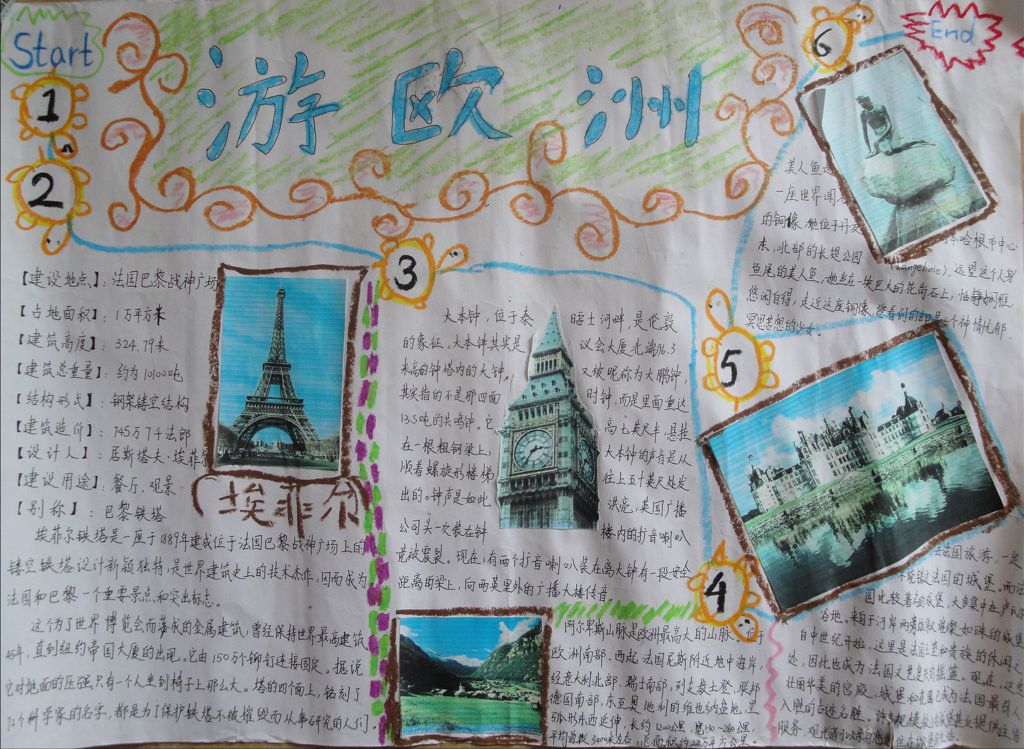 Start
游欧洲
End
1
2
【建设地点】：法国巴黎战神广场
【占地面积】：1万平方米
【建筑高度】：324.79米
【建筑总重量】：约为10100吨
【结构形式】：钢架镂空结构
【建筑造价】：745万7千法郎
【设计人】：居斯塔夫·埃菲尔
【建设用途】：餐厅，观景
【别称】：巴黎铁塔
埃菲尔
埃菲尔铁塔是一座于1889年建成位于法国巴黎战神广场上的
镂空铁塔设计新颖独特，是世界建筑史上的技术杰作，因而成为
法国和巴黎一个重要景点和突出标志。
这个为了世界博览会而落成的金属建筑，曾经保持世界最高建筑
45年，直到纽约帝国大厦的出现。它由150万个铆钉连接固定。据说
它对地面的压强只有一个人坐到椅子上那么大。塔的四个面上，铭刻了
72个科学家的名字，都是为了保护铁塔不被摧毁而从事研究的人们。
3
大本钟，位于泰晤士河畔，是伦敦
的象征。大本钟其实是议会大厦北端96.3
米高的钟塔内的大钟，又被昵称为大鹏钟，
其实指的不是那四面时钟，而是里面重达
13.5吨的共鸣钟，它高七英尺半悬挂
在一根粗钢梁上，大本钟的声音是从
顺着螺旋形楼梯往上五十英尺处发
出的。钟声是如此洪亮，英国广播
公司头一次装在钟楼内的扩音喇叭
竟被震裂。现在，有两个扩音喇叭装在离大钟有一段安全
距离的梁上，向两英里外的广播大楼传音。
4
阿尔卑斯山脉是欧洲最高大的山脉。位于
欧洲南部。西起法国尼斯附近地中海岸，
经意大利北部、瑞士南部、列支敦士登、联邦
德国南部，东至奥地利的维也纳盆地，呈
弧形东西延伸，长约1200公里
平均海拔3000米左右
5
法国旅游，一定
不能错过法国的城堡
谷地。来自于河岸两旁
自中世纪开始，这里是法国王和贵族的休闲之
处，因此也成为法国
壮丽华美的宫殿、城堡
人胜的古迹名胜。
服务，
6
美人鱼
一座世界闻名
的铜像，她位于丹麦
哈根市中心
东北部的长堤公园(Langelinie)。远望这个人身
鱼尾的美人鱼，她坐在一块巨大的花岗石上，恬静娴雅，
悠闲自得，走近这座铜像，您看到的却是一个神情忧郁、
冥思苦想的少女。